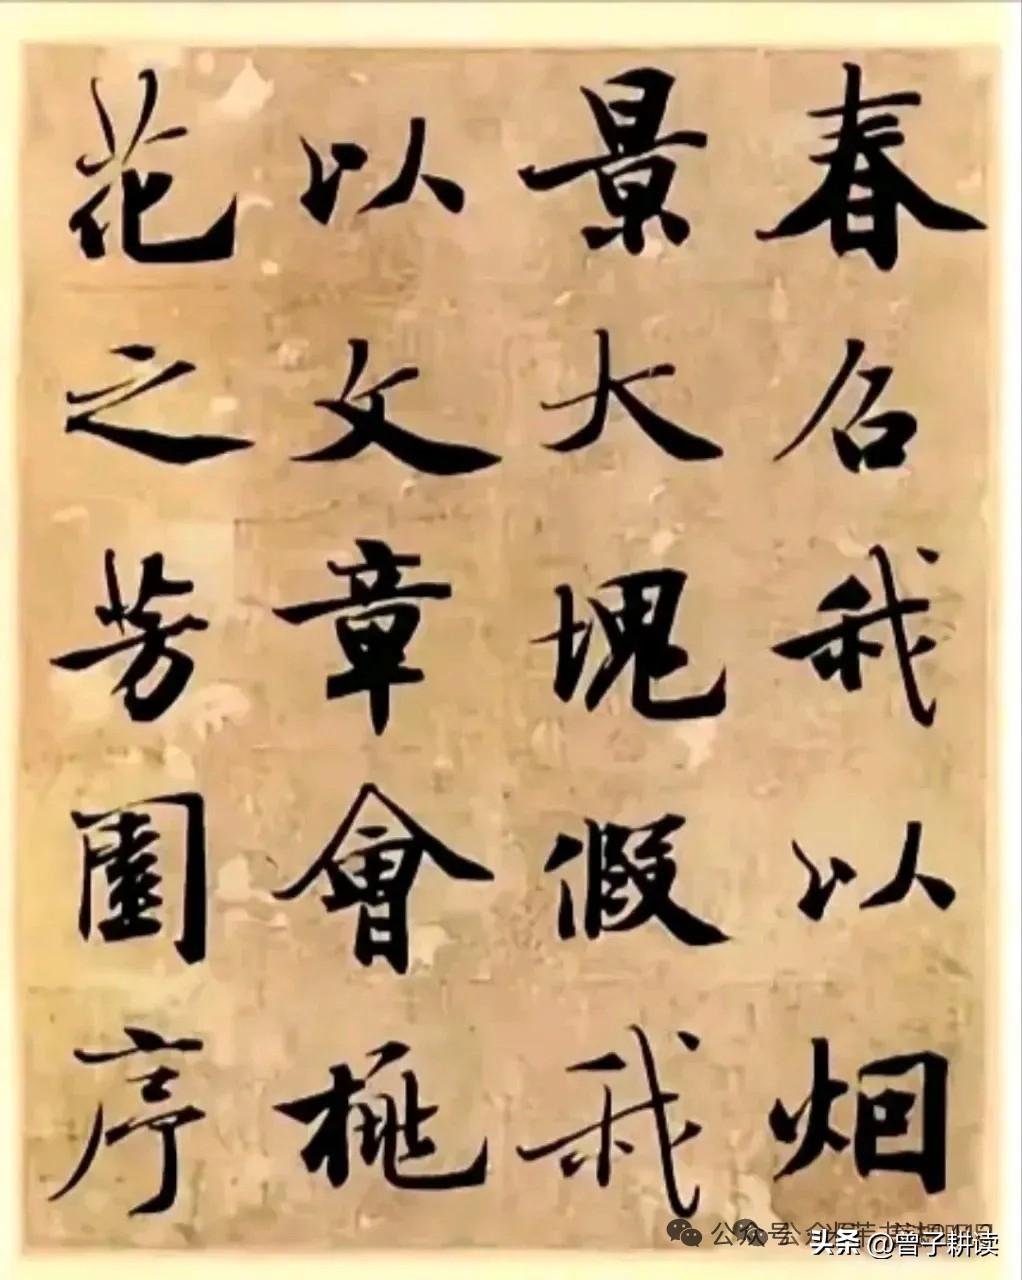 春召我以烟
景大塊假我
以文章會桃
花之芳園序
公众号
头条 @曾子耕读